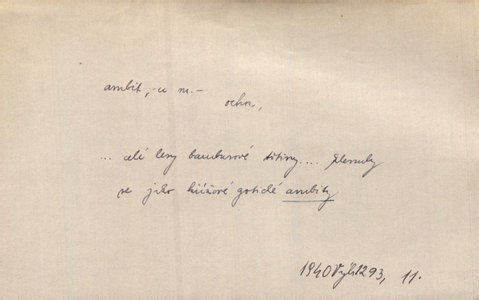 ambit, -u m. -
ochoz,
... celé lesy bambusové třtiny .... klenuly
se jako křížové gotické ambity
1940 293, 11.